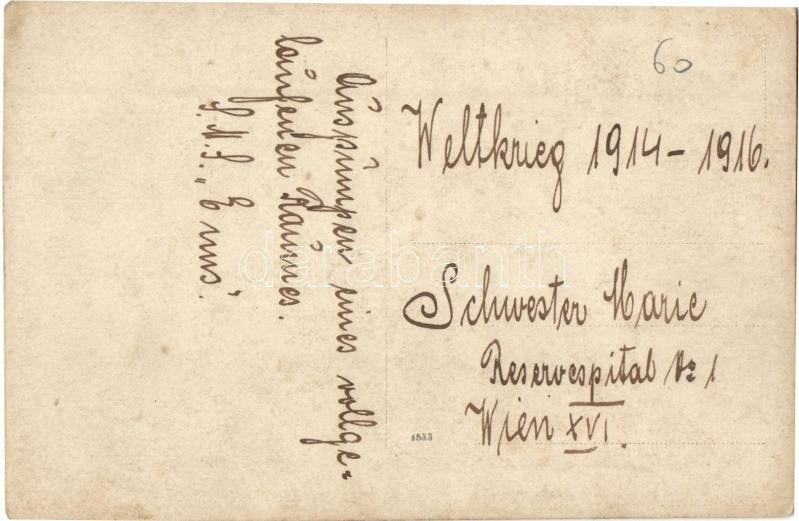 60
Weltkrieg 1914 - 1916.
Schwester Marie
Reservespital № 1
Wien XVI.
4533
Auspumpen eines vollge=
laufenen Raumes.
S.M.S. „Emns“.
darabanth